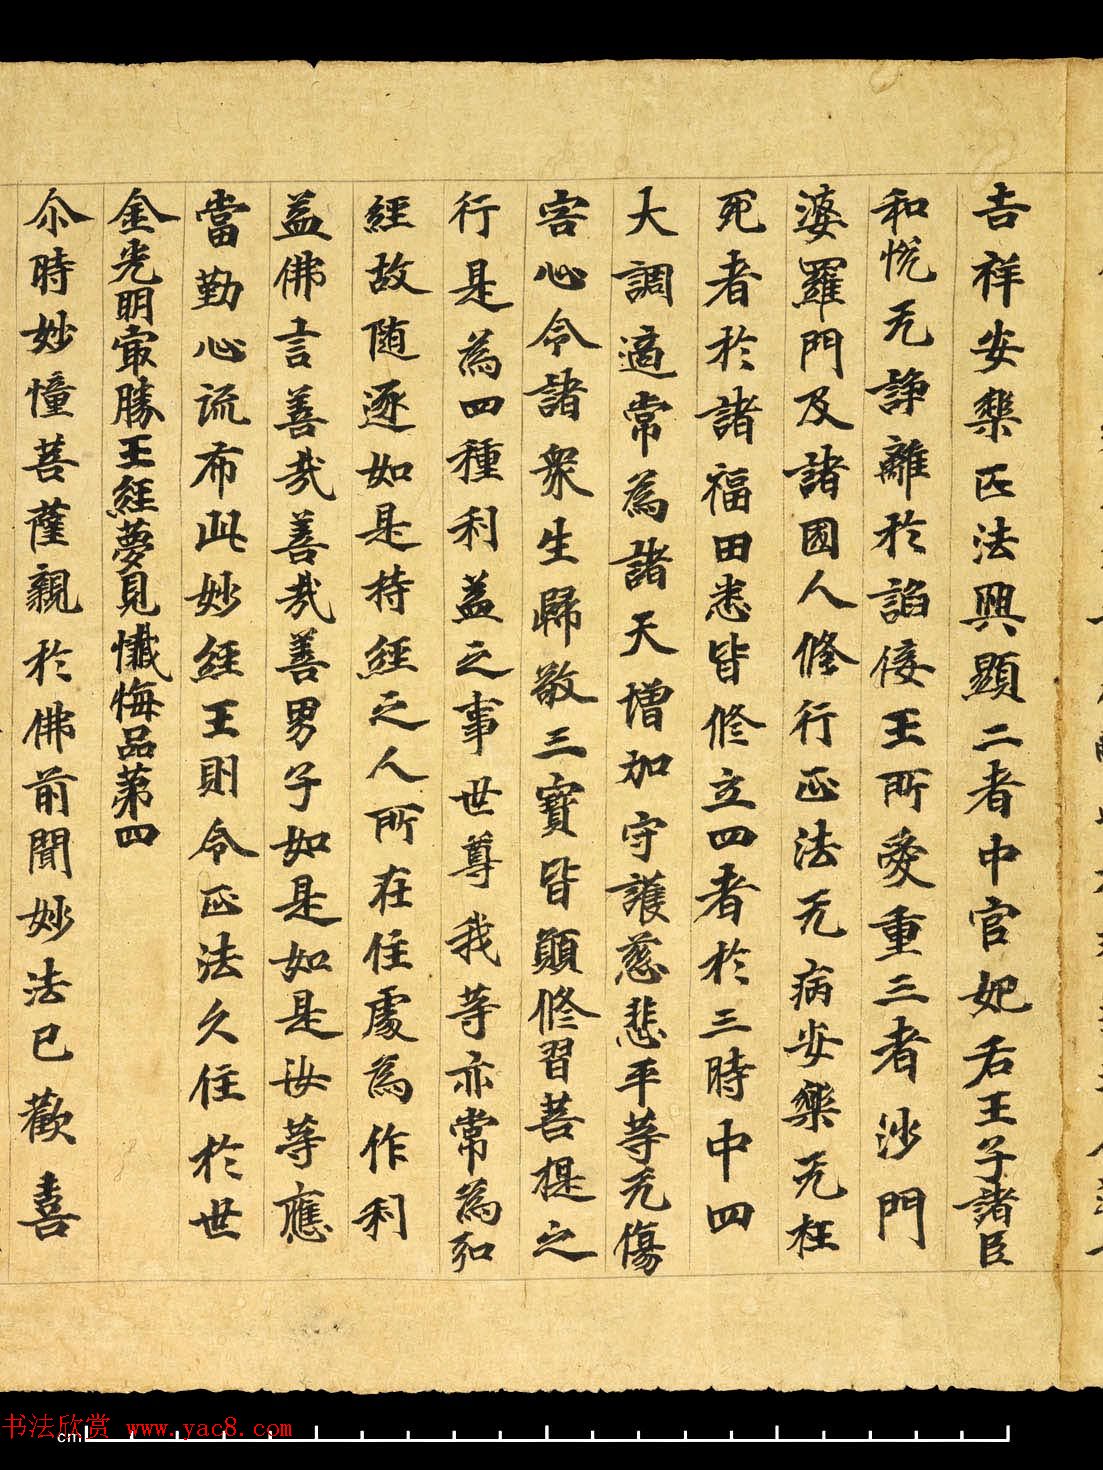 吉祥安樂正法興顯二者中宮妃后王子諸臣
和悅无諍離於諂佞王所愛重三者沙門
婆羅門及諸國人修行正法无病安樂无枉
死者於諸福田悉皆修立四者於三時中四
大調適常為諸天增加守護慈悲平等无傷
害心令諸衆生歸敬三寶皆願修習菩提之
行是為四種利益之事世尊我等亦常為弘
經故随逐如是持經之人所在住處為作利
益佛言善哉善哉善男子如是如是汝等應
當勤心流布此妙經王則令正法久住於世
金光明最勝王經夢見懺悔品苐四
尒時妙幢菩薩親於佛前聞妙法已歡喜
书法欣赏 www.yac8.com
cm